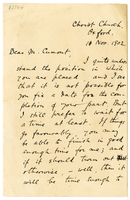 Christ Church,
Oxford,
10 Nov. 1902
Dear M. Cumont,
I quite under-
stand the position in which
you are placed and I see
that it is not possible for
you to fix a date for the com-
pletion of your part. But
I still prefer to wait for
a time at least. If things
go favourably, you may
be able to finish in good
enough time for me; and
if it should turn out
otherwise — well, then it
will be time enough to